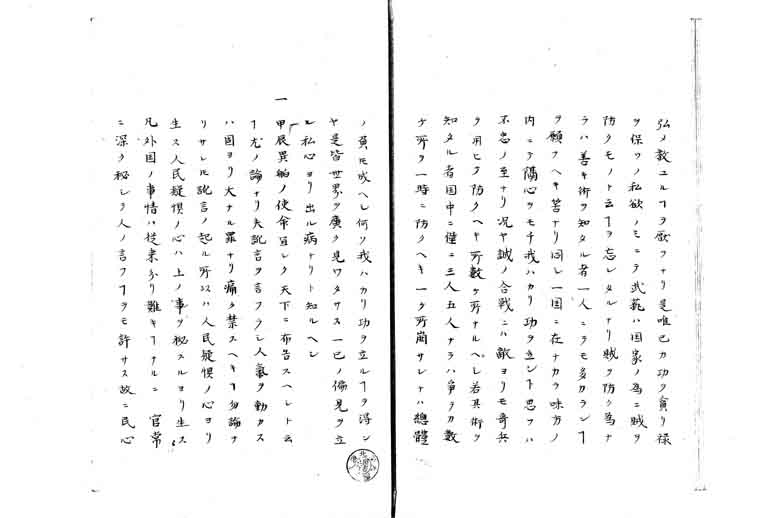 弘メ教ユルヿヲ厭フナリ是唯己カ功ヲ貪リ禄
ヲ保ツノ私欲ノミニテ武藝ハ国家ノ為ニ賊ヲ
防クモノト云ヿヲ忘レタルナリ賊ヲ防ク為ナ
ラハ善キ術ヲ知タル者一人ニテモ多カランヿ
ヲ願フヘキ苦ナリ同シ一国ニ在ナカラ味方ノ
内ニテ隔心ヲモチ我ハカリ功ヲ立ント思フハ
不忠ノ至ナリ况ヤ誠ノ合戦ニハ敵ヨリモ奇兵
ヲ用ヒテ防クヘキ所數ケ所ナルヘシ若其術ヲ
知タル者国中ニ僅ニ三人五人ナラハ争テカ数
ケ所ヲ一時ニ防クヘキ一ケ所崩サレナハ總軆
ノ負ﾓ成ヘシ何ソ我ハカリ功ヲ立ルヿヲ得ン
ヤ是皆世界ヲ廣ク見ワタサス一己ノ偏見ヲ立
ル私心ヨリ出ル病ナリト知ルヘシ
一甲辰異舶ノ使命宜シク天下ニ布告スヘシト云
ヿ尤ノ論ナリ夫訛言ヲ言フラシ人氣ヲ動カス
ハ国ヨリ大ナル罪ナリ痛ク禁スヘキヿ勿論ナ
リサレﾓ訛言ノ起ル所以ハ人民疑惧ノ心ヨリ
生ス人民疑惧ノ心ハ上ノ事ヲ秘スルヨリ生ス
凡外国ノ事情ハ従来分リ難キヿナルニ 官常
ニ深ク秘シテ人ノ言フヿヲモ許サス故ニ民心